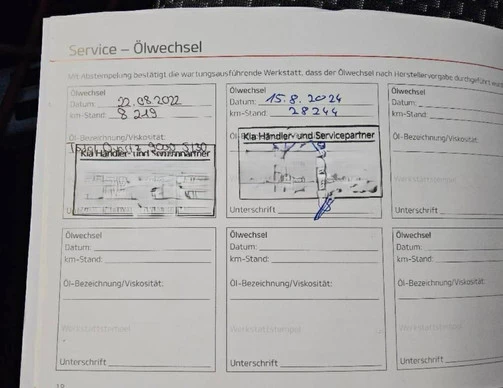 Service – Ölwechsel
Mit Abstempelung bestätigt die wartungsausführende Werkstatt, dass der Ölwechsel nach Herstellervorgabe durchgeführt
Ölwechsel
Datum: 22.08.2022
km-Stand: 8 219
Öl-Bezeichnung/Viskosität:
Total Quartz 9000 5W30
Kia Händler- und Servicepartner
Ölwechsel
Datum: 15.8.2024
km-Stand: 28244
Kia Händler- und Servicepartner
Unterschrift
Ölwechsel
Datum:
km-Stand:
Öl-Bezeichnung/Viskosität:
Ölwechsel
Datum:
km-Stand:
Öl-Bezeichnung/Viskosität:
Werkstattstempel
Unterschrift
Ölwechsel
Datum:
km-Stand:
Öl-Bezeichnung/Viskosität:
Werkstattstempel
Unterschrift
Ölwechsel
Datum:
km-Stand:
Öl-Bezeichnung/Viskosität:
Unterschrift
18